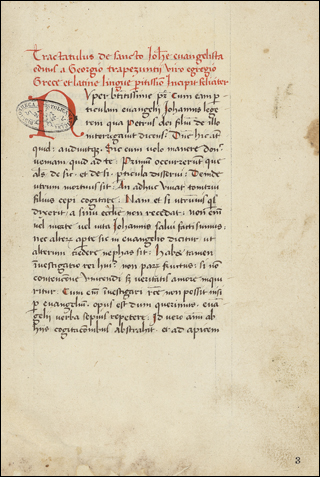 Tractatulus de sancto Iohe euangelista
editus a Georgio trapezuntio viro egregio
Grece et latine lingue peritissimo Incipit feliciter
Nuper btissime pr cum eam p
ticulam euangelij Iohannis lege
rem qua Petrus dei filium de illo
interrogauit dicens: Dne hic at
quid: audiuitque. Sic eum volo manere don
ueniam quid ad te: Primum occurrerunt que
als de sic et de si pticula disserui: Deinde
utrum mortuus sit. An adhuc viuat tonitrui
filius cepi cogitare. Nam et si utrumuis qs
dixerit: a sinu ecclie non recedat: non em
vel morte vel uita Iohannis salui facti sumus:
nec alterum apte sic in euangelio dicitur ut
alterum credere nephas sit: Habet tamen
inuestigatio rei huius non parum fructus: si no
contencione sed ueritatis amore inqui
ritur. Cum em inuestigari recte non possit nisi
p euangelium: opus est dum querimus, euan
gelij verba sepius repetere: Id vero aim ab
hijs cogitacionibus abstrahit et ad apicem
3